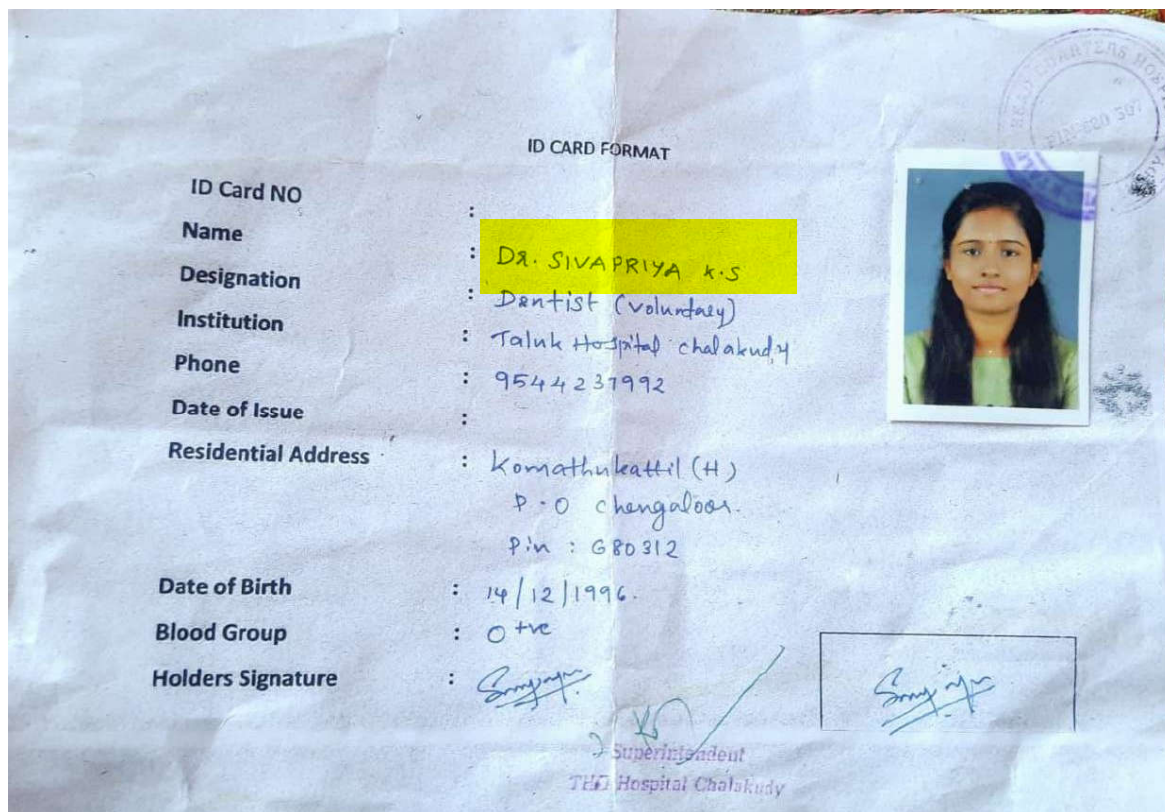 HEAD QUARTERS HOSPI
PIN-680 307
ID CARD FORMAT
ID Card NO :
Name : DR. SIVAPRIYA K.S
Designation : Dentist (Voluntary)
Institution : Taluk Hospital chalakudy
Phone : 9544237992
Date of Issue :
Residential Address : Komathukattil (H)
P.O chengaloor.
Pin : 680312
Date of Birth : 14/12/1996.
Blood Group : O +ve
Holders Signature :
Superintendent
THQ Hospital Chalakudy